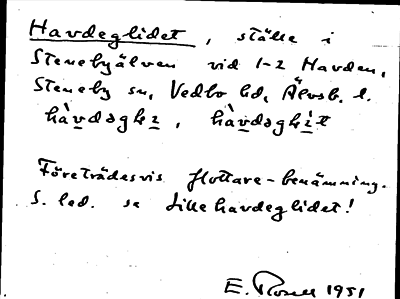 Havdeglidet, ställe i
Stenebyälven vid 1-2 Havden,
Steneby sn, Vedbo hd, Älvsb. l.
Företrädesvis flottare-benämning.
S. led. se Lillehavdeglidet!
E. 1951